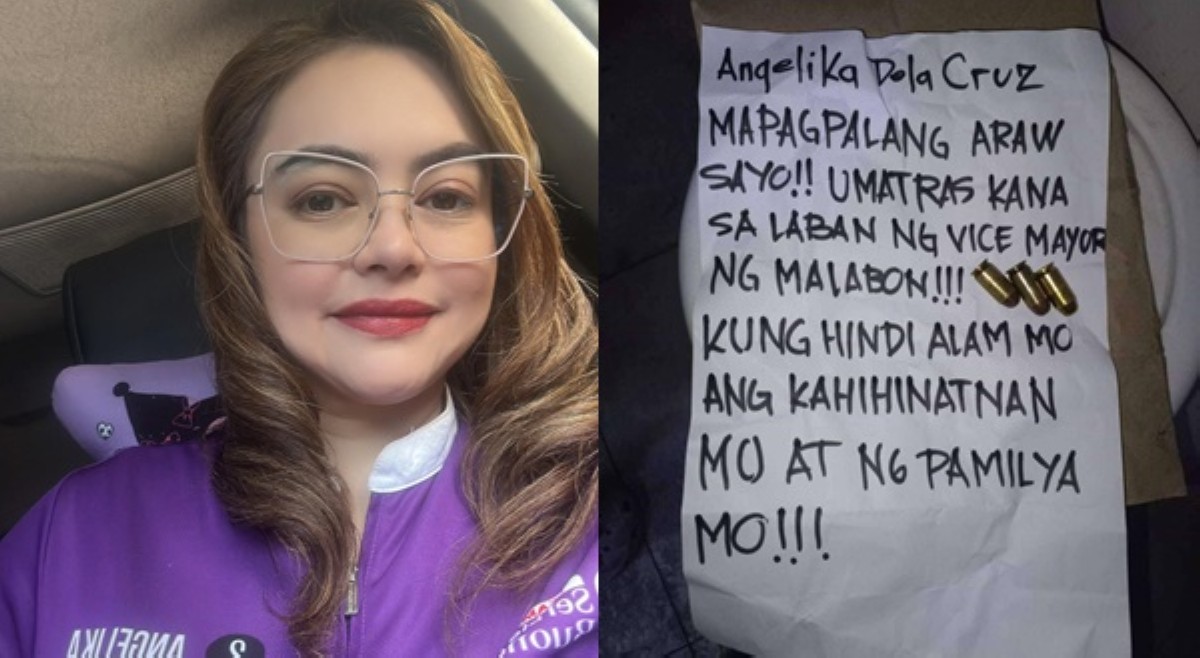 Angelika Dela Cruz
MAPAGPALANG ARAW
SAYO!! UMATRAS KANA
SA LABAN NG VICE MAYOR
NG MALABON!!!
KUNG HINDI ALAM MO
ANG KAHIHINATNAN
MO AT NG PAMILYA
MO!!!
ANGELIKA
2